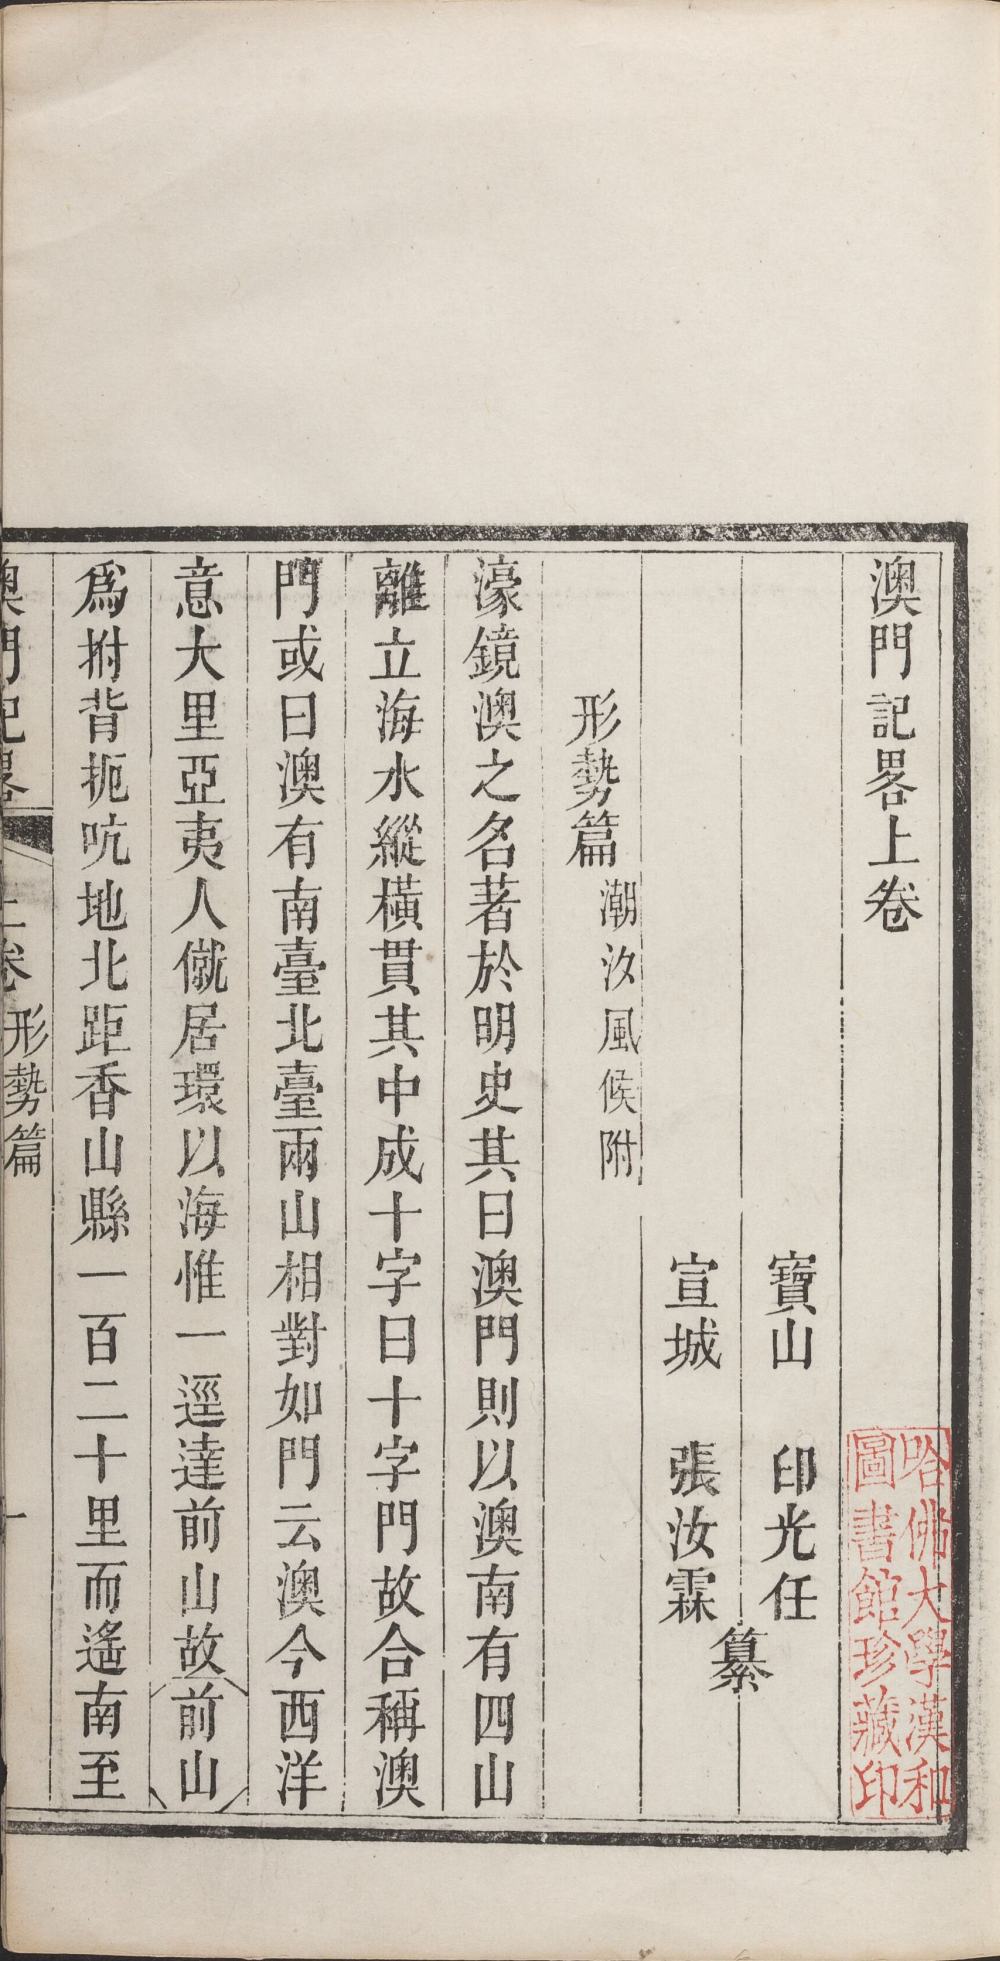 澳門記畧上卷
寶山 印光任
宣城 張汝霖
纂
形勢篇 潮汐風候附
濠鏡澳之名著於明史其曰澳門則以澳南有四山
離立海水縱橫貫其中成十字曰十字門故合稱澳
門或曰澳有南臺北臺兩山相對如門云澳今西洋
意大里亞夷人僦居環以海惟一逕達前山故前山
為拊背扼吭地北距香山縣一百二十里而遙南至
澳門記畧 上卷 形勢篇 一
哈佛大學漢和
圖書館珍藏印